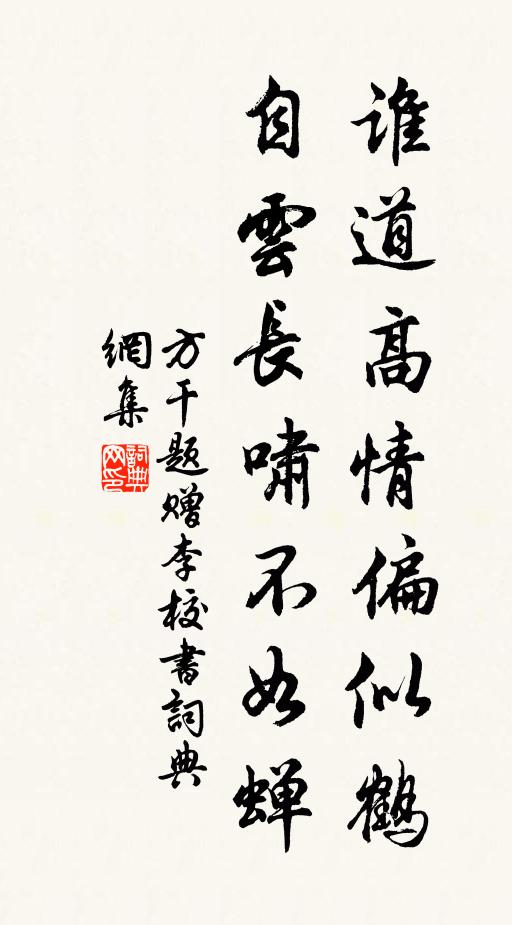 誰道高情偏似鶴
自雲長嘯不如蝉
方干题赠李校書詞典
網集
詞典
网印